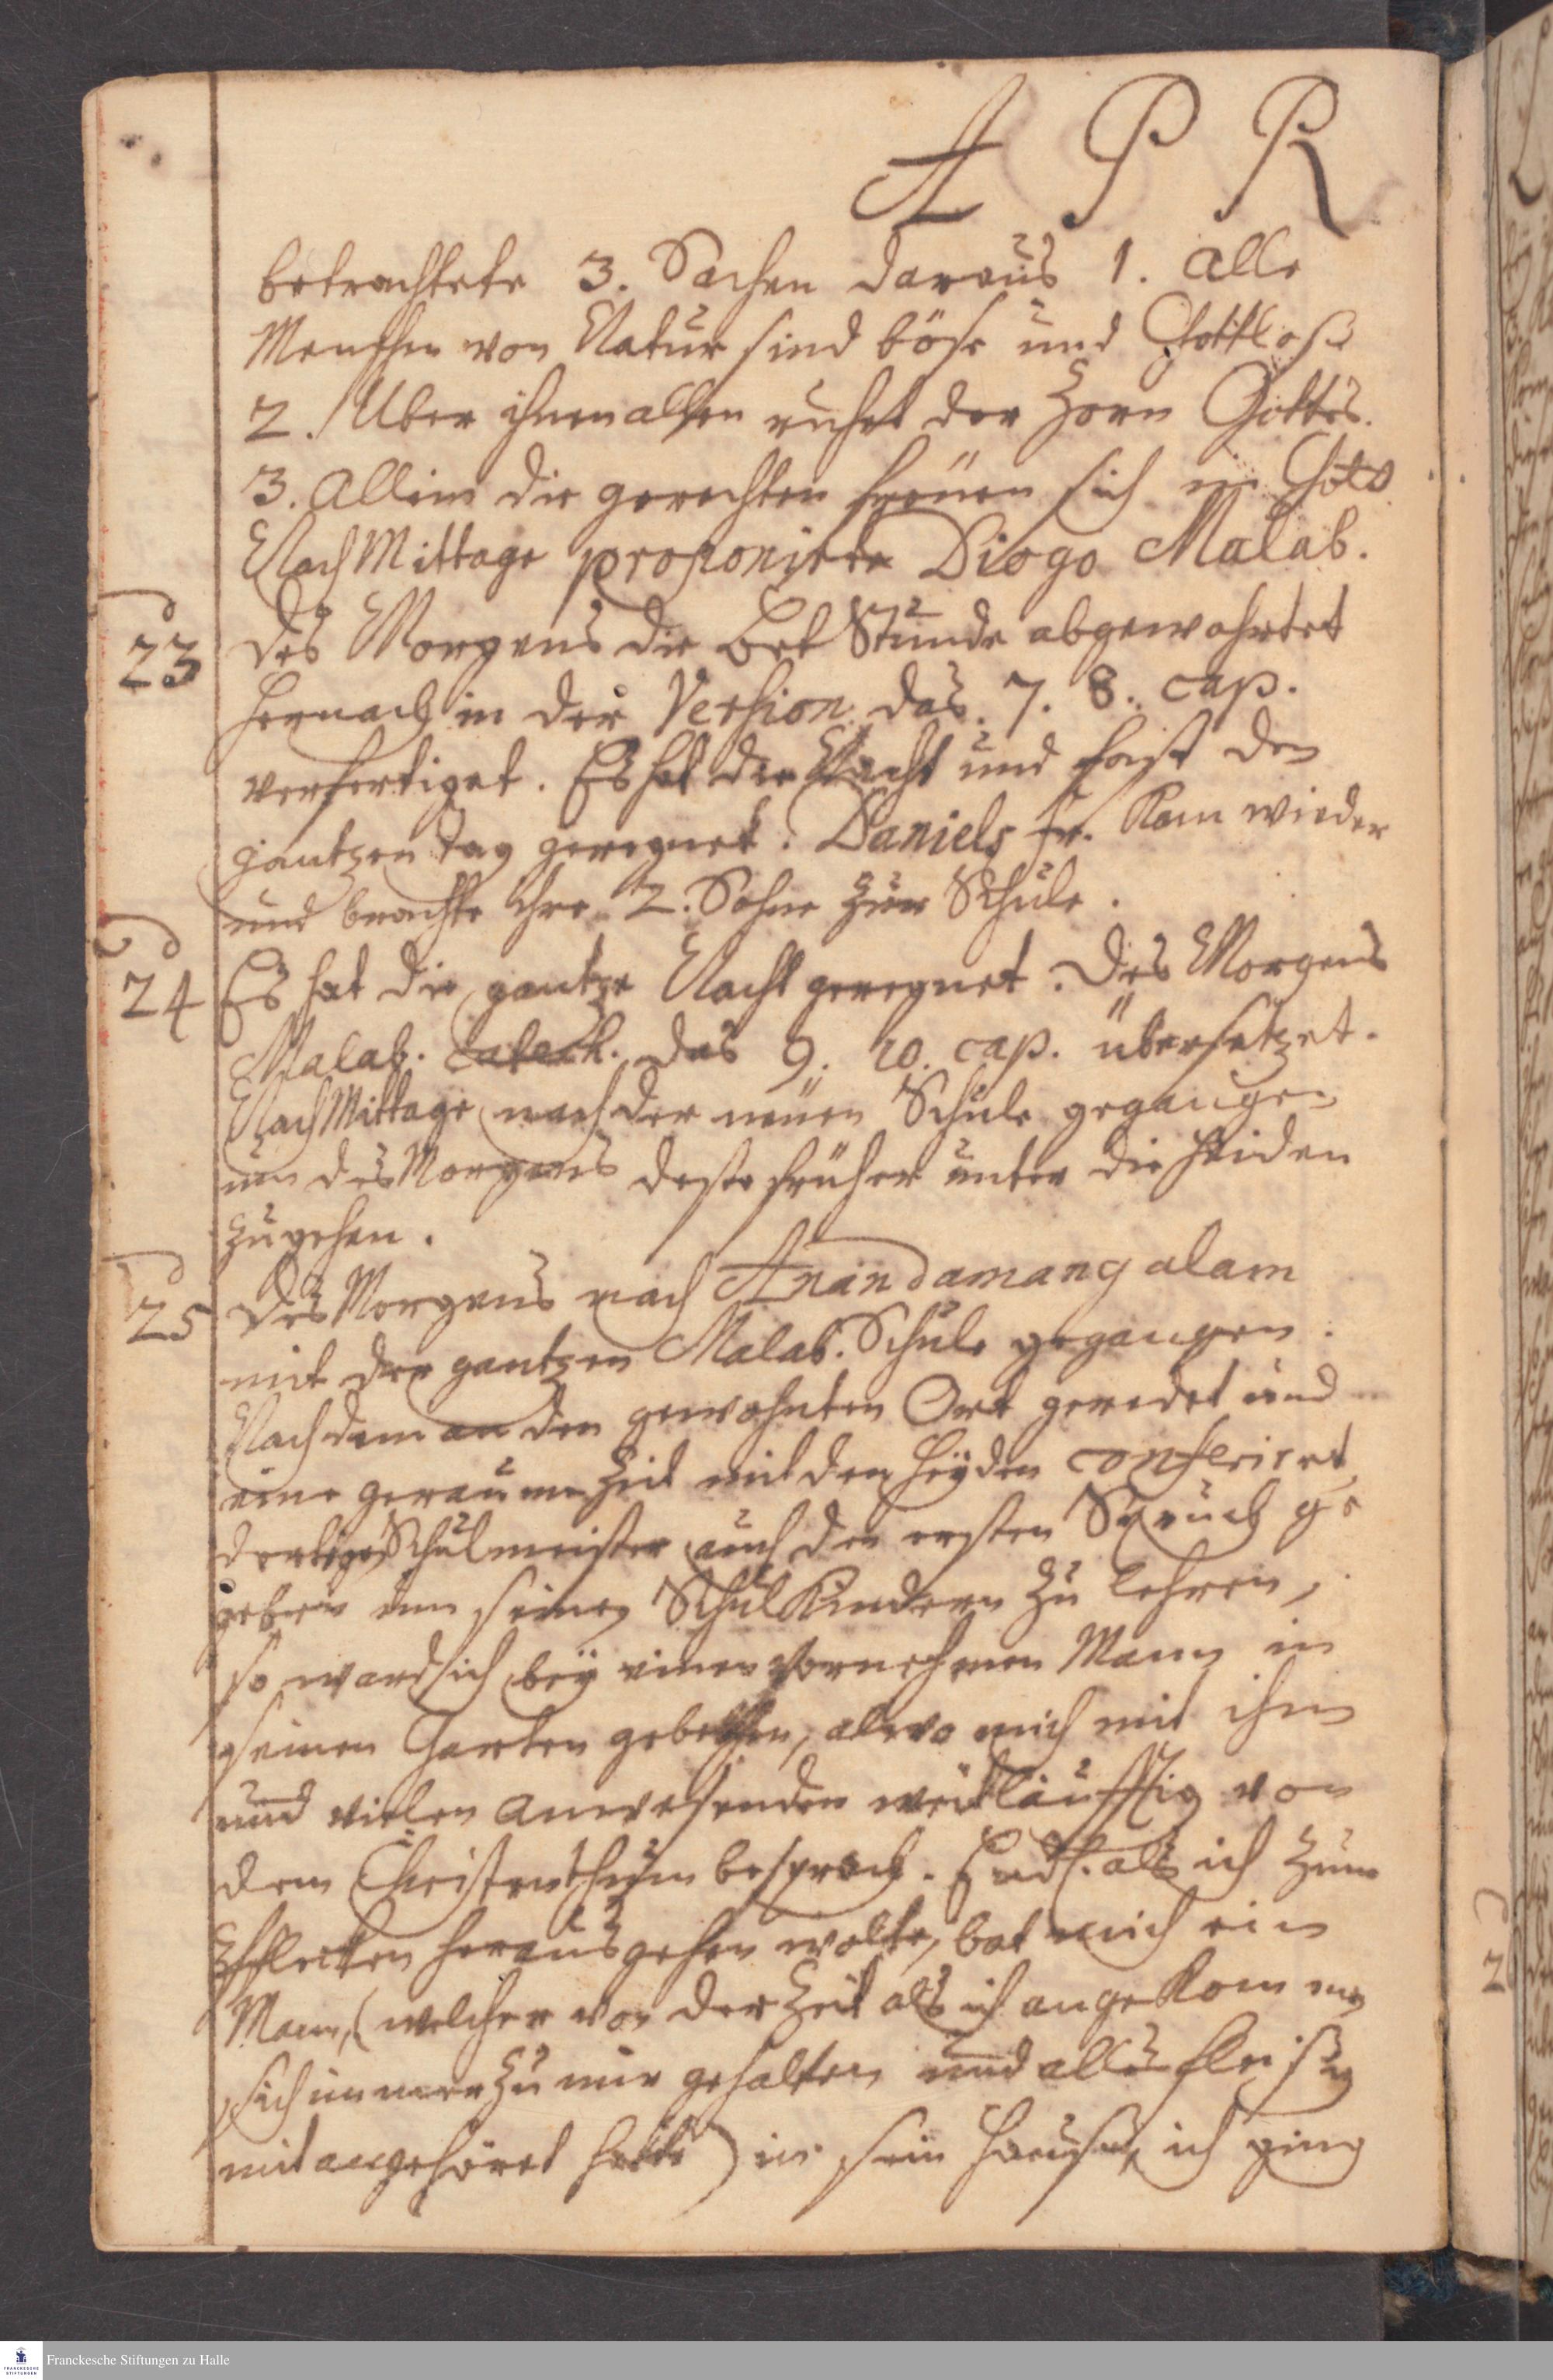 A P R
betrachtete 3. Sachen daraus 1. Alle
Menschen von Natur sind böse und Gottloß
2. Über ihnen allen ruhet der Zorn Gottes.
3. Allein die gerechten freuen sich in Gott
Nach Mittage proponirte Diogo Malab.
23 Des Morgens die Bet Stunde abgewahrtet
hernach in der Version das 7. 8. cap.
verfertiget. Es hat die Nacht und fast den
gantzen Tag geregnet. Daniels fr. Kam wieder
und brachte ihre 2. Sohne zur Schule.
24 Es hat die gantze Nacht geregnet. Des Morgens
Malab. catech. das 9. 10. cap. übersetzet.
Nach Mittage nach der neuen Schule gegangen
um des Morgens desto früher unter die Heiden
zugehen.
25 Des Morgens nach Anandamangalam
mit der gantzen Malab. Schule gegangen.
Nachdem an den gewohnten Ort geredet und
eine geraume Zeit mit den Heyden conferiret
dortigen Schulmeister auch den ersten Spruch ge
geben um seinen Schul Kindern zu lehren,
so ward ich bey einen vornehmen Mann in
seinen Garten gebethen, alwo mich mit ihm
und vielen Anwesenden weitläufftig von
dem Christenthum besprach. Endl. als ich zum
Flecken herausgehen wolte, bat mich ein
Mann, (welcher von der Zeit als ich angekommen
sich immer zu mir gehalten und alles fleißig
mit angehöret hatte) in sein Hauß, ich ging
Franckesche Stiftungen zu Halle